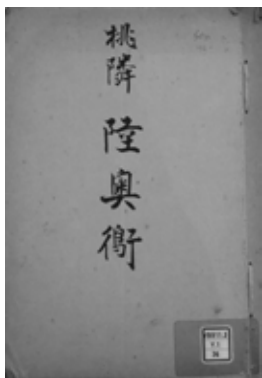 桃隣
陸奥衛